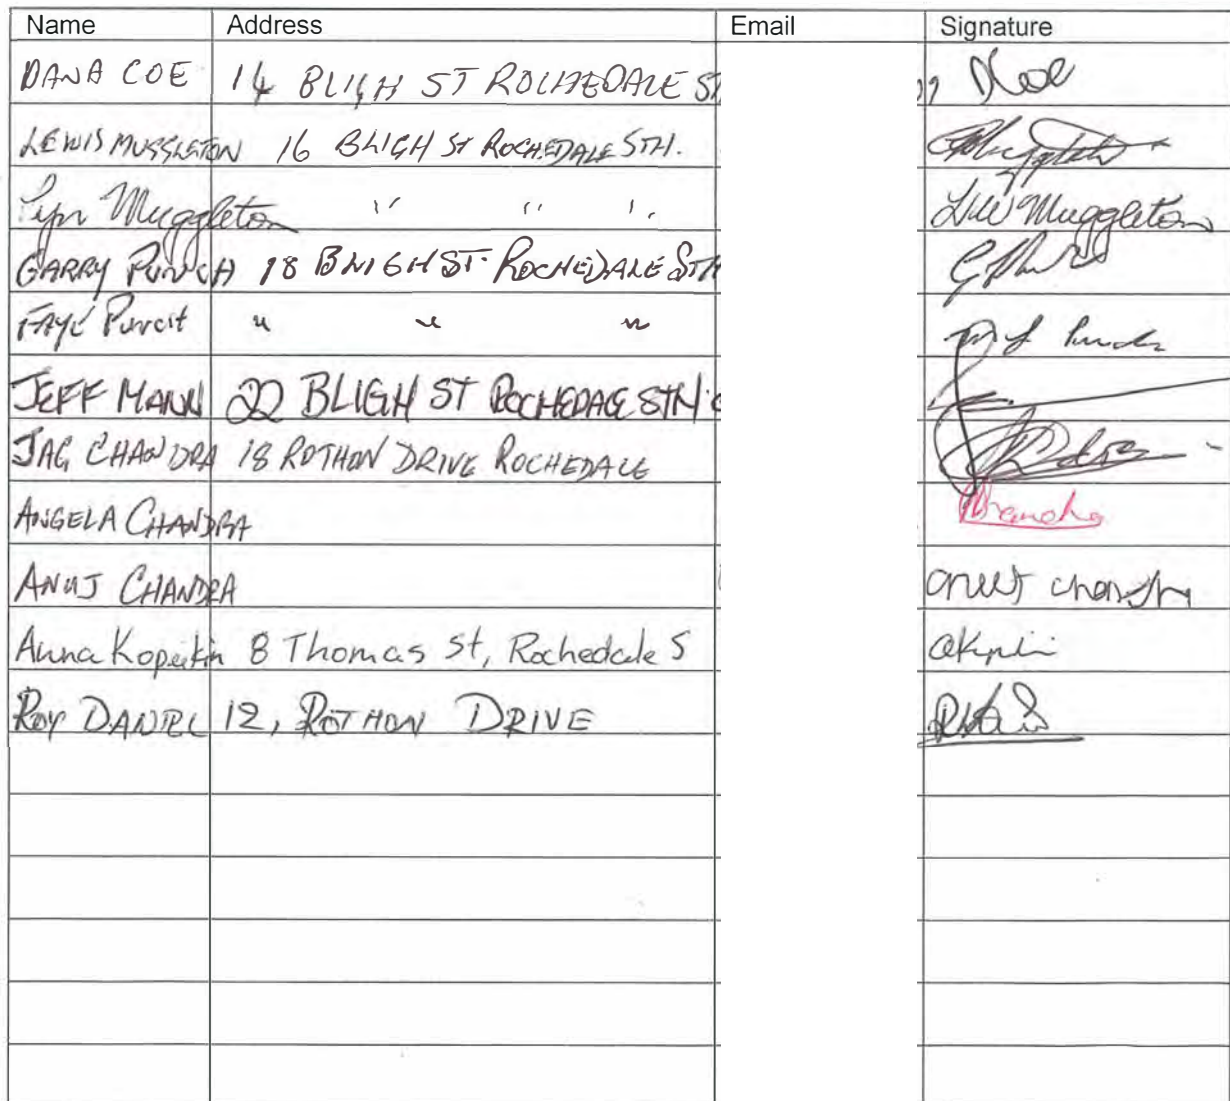 Name Address Email Signature
DANA COE 14 BLIGH ST ROCHEDALE ST
LEWIS MUGGLETON 16 BLIGH ST ROCHEDALE STH.
Lyn Muggleton " " " Muggleton
GARRY PUNCH 18 BLIGH ST ROCHEDALE STH
FAYE " " "
JEFF MANN 22 BLIGH ST ROCHEDALE STH
JAG CHANDRA 18 ROTHON DRIVE ROCHEDALE
ANGELA CHANDRA
ANUJ CHANDRA
Anna Kopeikin 8 Thomas St, Rochedale S
ROY DANIEL 12, ROTHON DRIVE